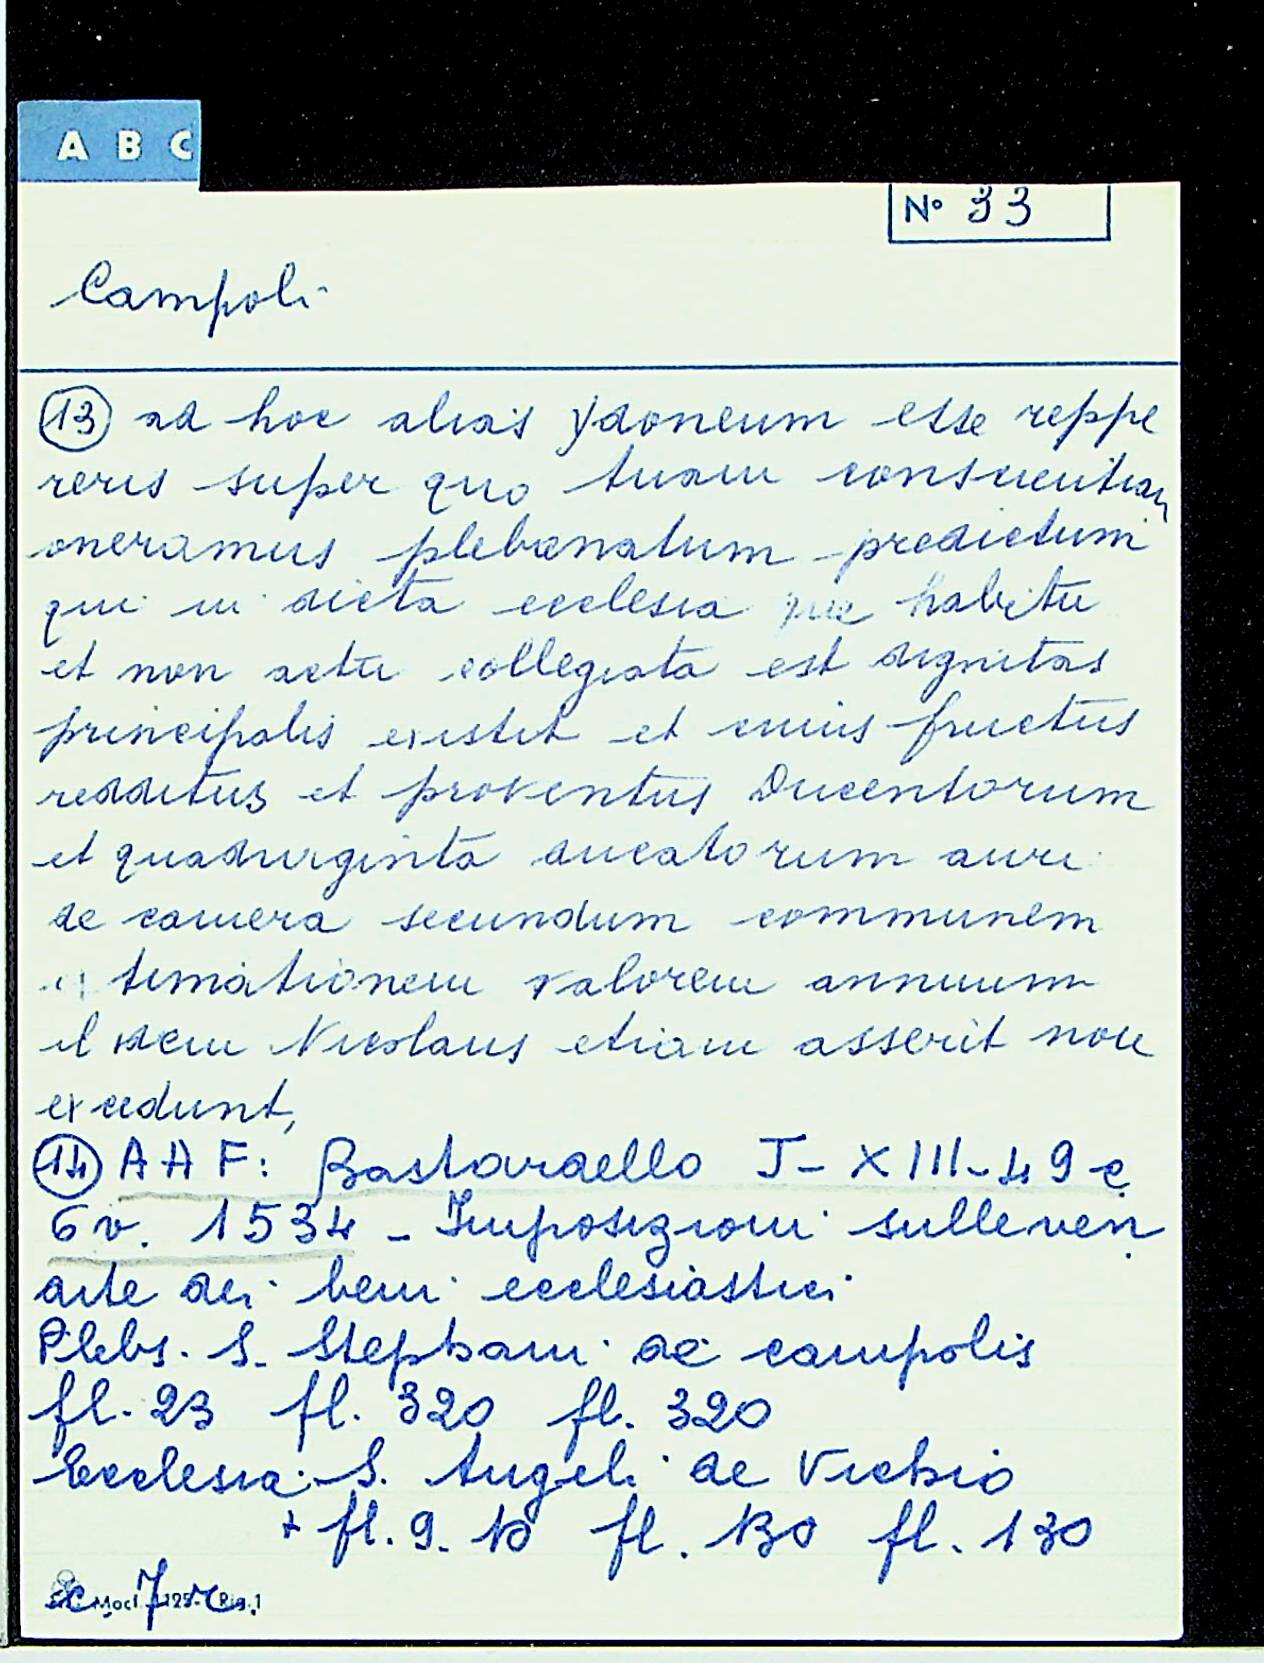 A B C
N° 33
Campoli
(13) ad hoc alias ydoneum esse reppe
reris super quo tuam conscientiam
oneramus plebanatum predictum
qui in dicta ecclesia que habitu
et non actu collegiata est dignitas
principalis existit et cuius fructus
redditus et proventus Ducentorum
et quadraginta ducatorum auri
de camera secundum communem
extimationem valorem annuum
idem Nicolaus etiam asserit non
excedunt,
(14) AAF: Bastardello I-XIII-49 c
6v. 1534 - Imposizioni sulle ven
dite dei beni ecclesiastici
Plebs. S. Stephani de campolis
fl. 23 fl. 320 fl. 320
Ecclesia S. Angeli de Vichio
+ fl. 9. 10 fl. 130 fl. 130
c. 7r.